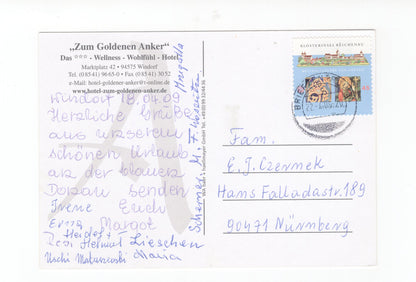 „Zum Goldenen Anker“
Das *** - Wellness - Wohlfühl - Hotel
Marktplatz 42 • 94575 Windorf
Tel. (0 85 41) 96 65-0 • Fax (0 85 41) 30 52
e-Mail: hotel-zum-goldenener-anker@t-online.de
www.hotel-zum-goldener-anker.de
Windorf 18.04.09
Herzliche Grüße
aus unserem
schönen Urlaub
an der blauen
Donau senden
Irene Euch
Erna Margot
Heidef
Resi Helmut Lieschen
Uschi Maria
Margarita
KLOSTERINSEL REICHENAU
BRIEF
Fam.
E.J. Czermek
Hans Falladastr. 189
90471 Nürnberg